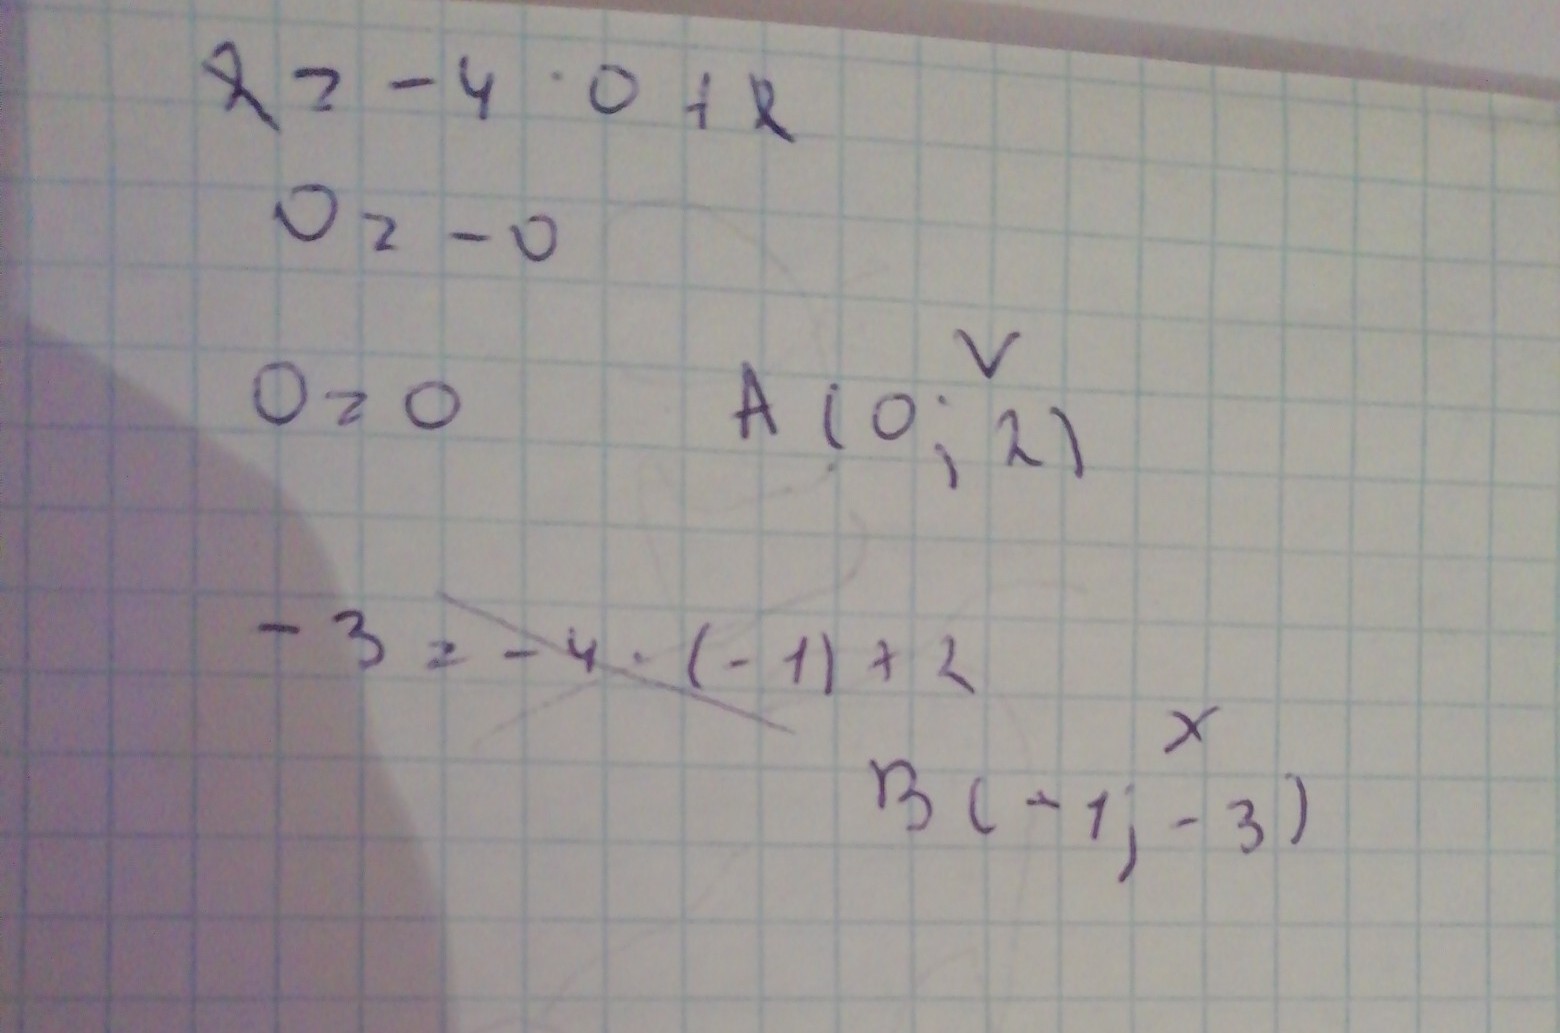 2 = -4 · 0 + 2
0 = -0
0 = 0 A (0; 2) V
-3 = -4 · (-1) + 2
B (-1; -3) X